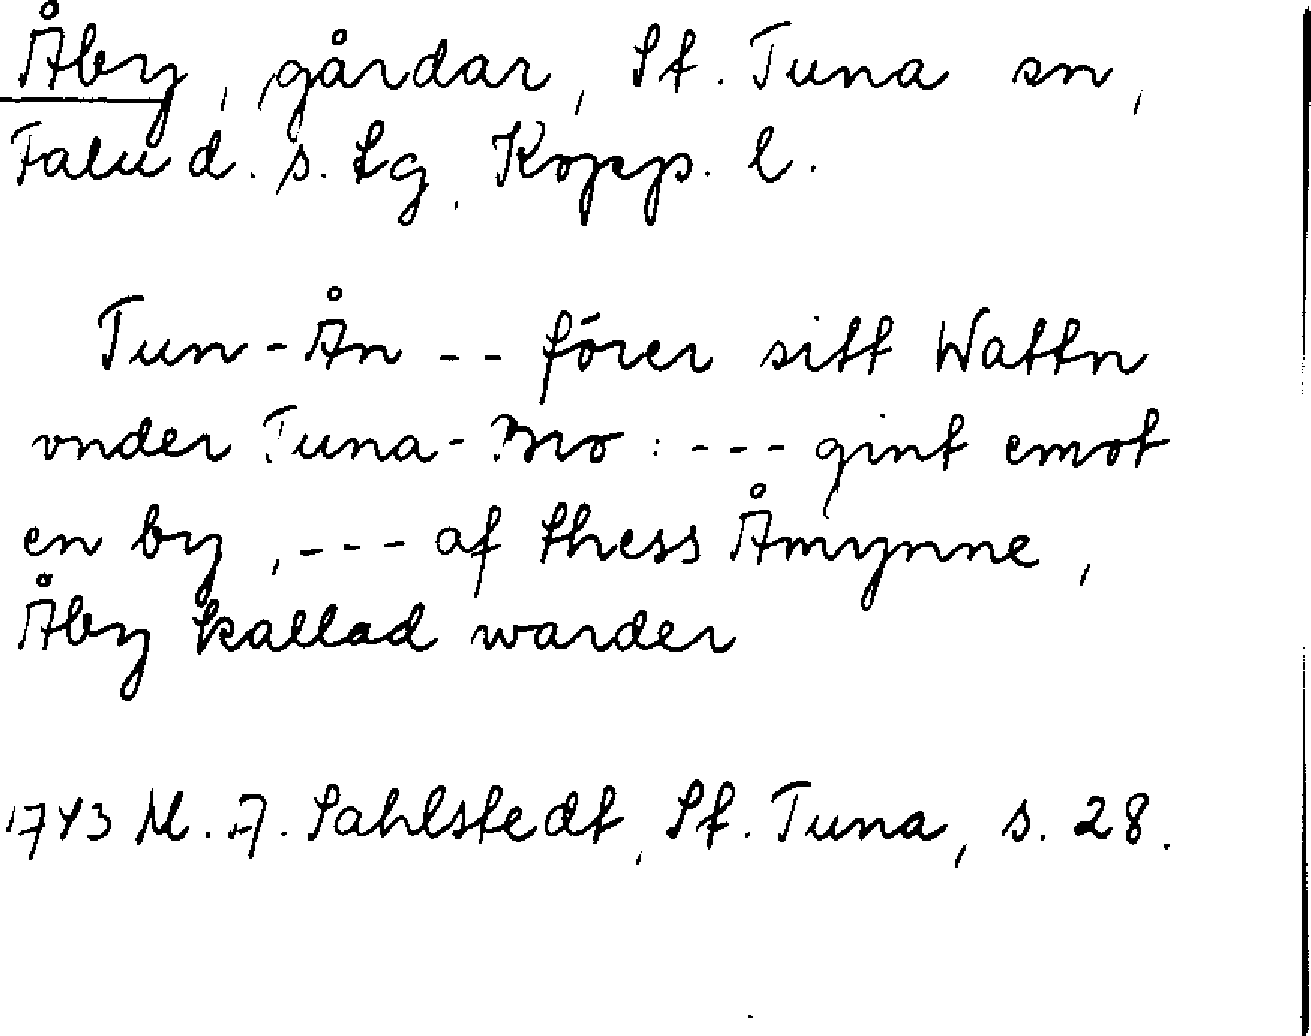 Åby, gårdar, St. Tuna sn,
Falu d. s. lg, Kopp. l.
Tun-Ån -- förer sitt Wattn
vnder Tuna-Bro: --- gint emot
en by, --- af thess Åmynne,
Åby kallad warder
1743 M. A. Sahlstedt, St. Tuna, s. 28.